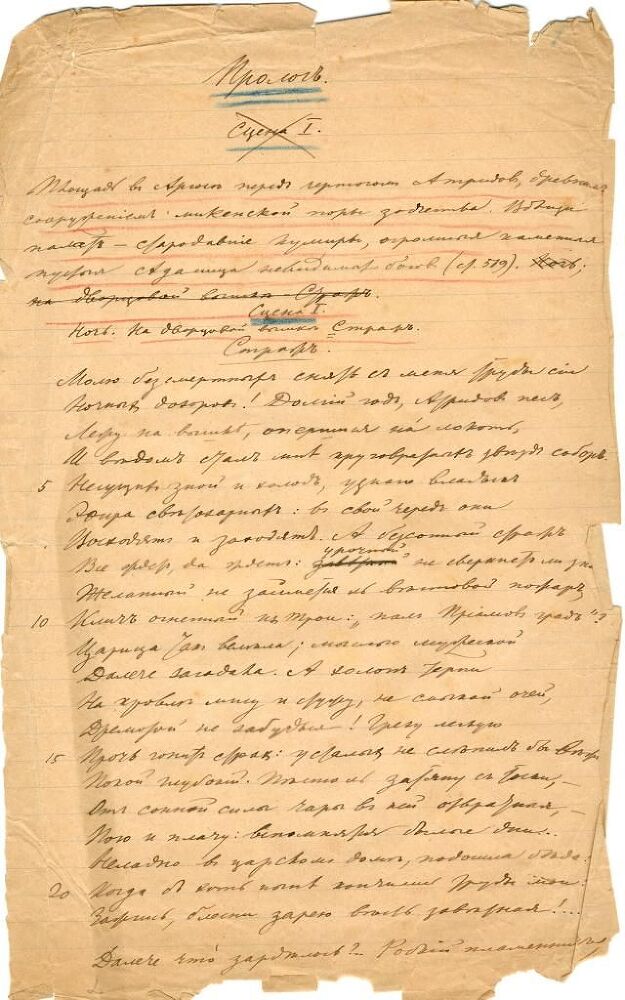 Прологъ.
Сцена I.
Площадь въ Аргосѣ передъ чертогомъ Атридовъ, древнимъ
сооруженіемъ микенской поры зодчества. Вблизи
палатъ — стародавніе кумиры, огромныя каменныя
пустыя сѣдалища невидимыхъ боговъ (ст. 519). Ночь:
на дворцовой вышкѣ Стражъ.
Сцена I.
Ночь. На дворцовой вышкѣ Стражъ.
Стражъ.
Молю безсмертныхъ снять съ меня труды сіи
Ночныхъ дозоровъ! Долгій годъ, Атридовъ песъ,
Лежу на вышкѣ, опершися на локоть,
И вѣдомъ сталъ мнѣ круговратныхъ звѣздъ соборъ.
5 Несущихъ зной и холодъ, узнаю владыкъ
Эѳира свѣтозарныхъ: въ свой чередъ они
Восходятъ и заходятъ. А безсонный стражъ
Все ждетъ, да
урочный
не сверкнетъ ли знакъ
Желанный, не займется ль вѣстовой пожаръ,
10 Кличъ огненный изъ Трои: „палъ Пріамовъ градъ"?
Царица такъ велѣла; мыслью мужеской
Далече загадала. А холопъ терпи
На кровлѣ мглу и стужу, не смыкай очей,
Дремотой не забудься! Грезу легкую
15 Прочь гонитъ страхъ: усталыхъ не слѣпилъ бы вѣждъ
Покой глубокій. Пѣсню ль затяну съ тоски, —
Отъ сонной силы чары въ ней отвратныя, —
Пою и плачу: вспомнятся былые дни...
Неладно въ царскомъ домѣ, подошла бѣда.
20 Когда бъ хоть нынѣ кончились труды мои:
Зажгись, блесни зарею вѣсть завѣтная!...
Далече что зардѣлось? — Робкій пламенникъ,